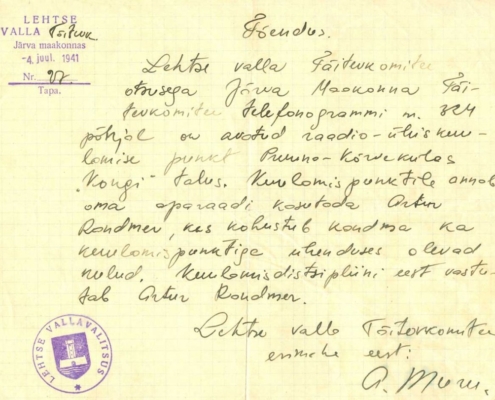 LEHTSE
VALLA Täitevk.
Järva maakonnas
-4. juul. 1941
Nr.
Tapa.
Tõendus.
Lehtse valla Täitevkomitee
otsusega Järva Maakonna Täi-
tevkomitee telefonogrammi nr. 324
põhjal on avatud raadio-ühiskuu-
lamise punkt Pruuna-Kõrvekülas
"Kongi" talus. Kuulamispunktile annab
oma aparaadi kasutada Artur
Rondmer, kes kohustub kandma ka
kuulamispunktiga ühenduses olevad
kulud. Kuulamisdistsipliini eest vastu-
tab Artur Rondmer.
Lehtse valla Täitevkomitee
esimehe eest:
LEHTSE VALLAVALITSUS